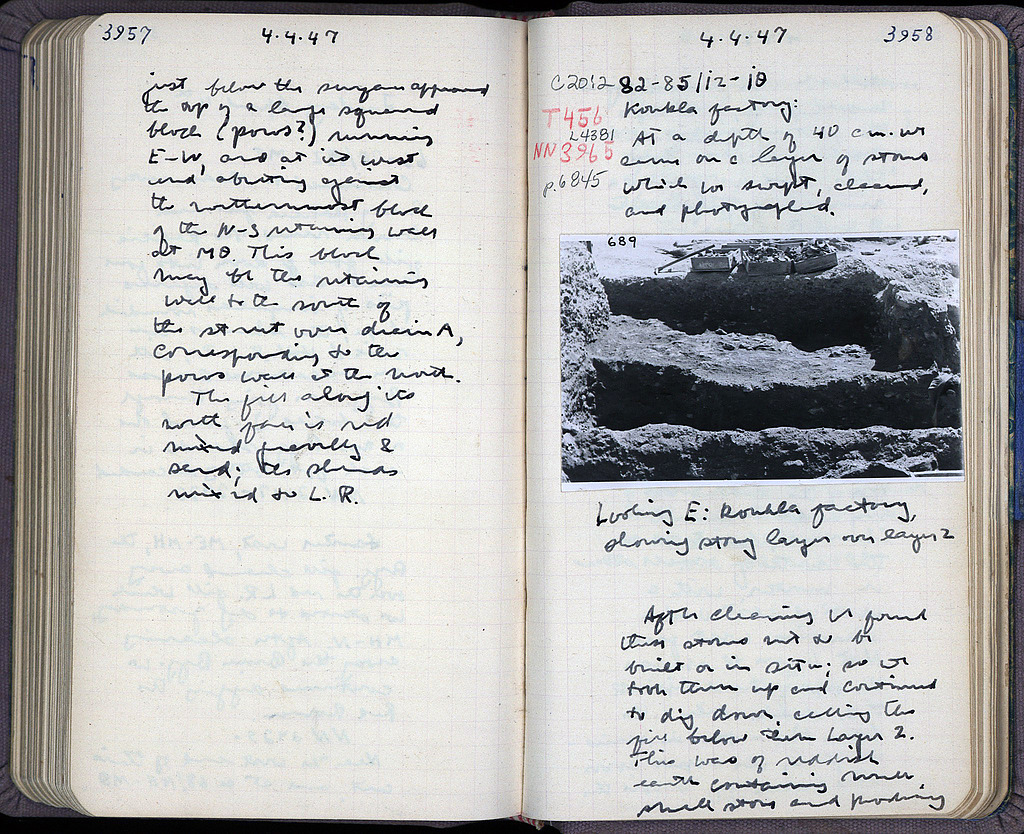 3957
4.4.47
just below the surface appeared
the top of a large squared
block (poros?) running
E-W, and at its west
end abutting against
the northernmost block
of the N-S retaining wall
at MΘ. This block
may be the retaining
wall to the south of
the street over drain A,
corresponding to the
poros wall at the north.
The fill along its
north face is red
mixed gravelly &
sand; the sherds
mixed to L. R.
4.4.47
3958
C2012 82-85/12-18
T456
L4381
NN3965
p.6845
Koukla factory:
At a depth of 40 cm. we
came on a layer of stones
which we swept, cleaned,
and photographed.
689
Looking E: Koukla factory,
showing stony layer over layer 2
After cleaning we found
these stones not to be
built or in situ; so we
took them up and continued
to dig down, calling the
fill below them Layer 2.
This was of reddish
earth containing
small stones and producing